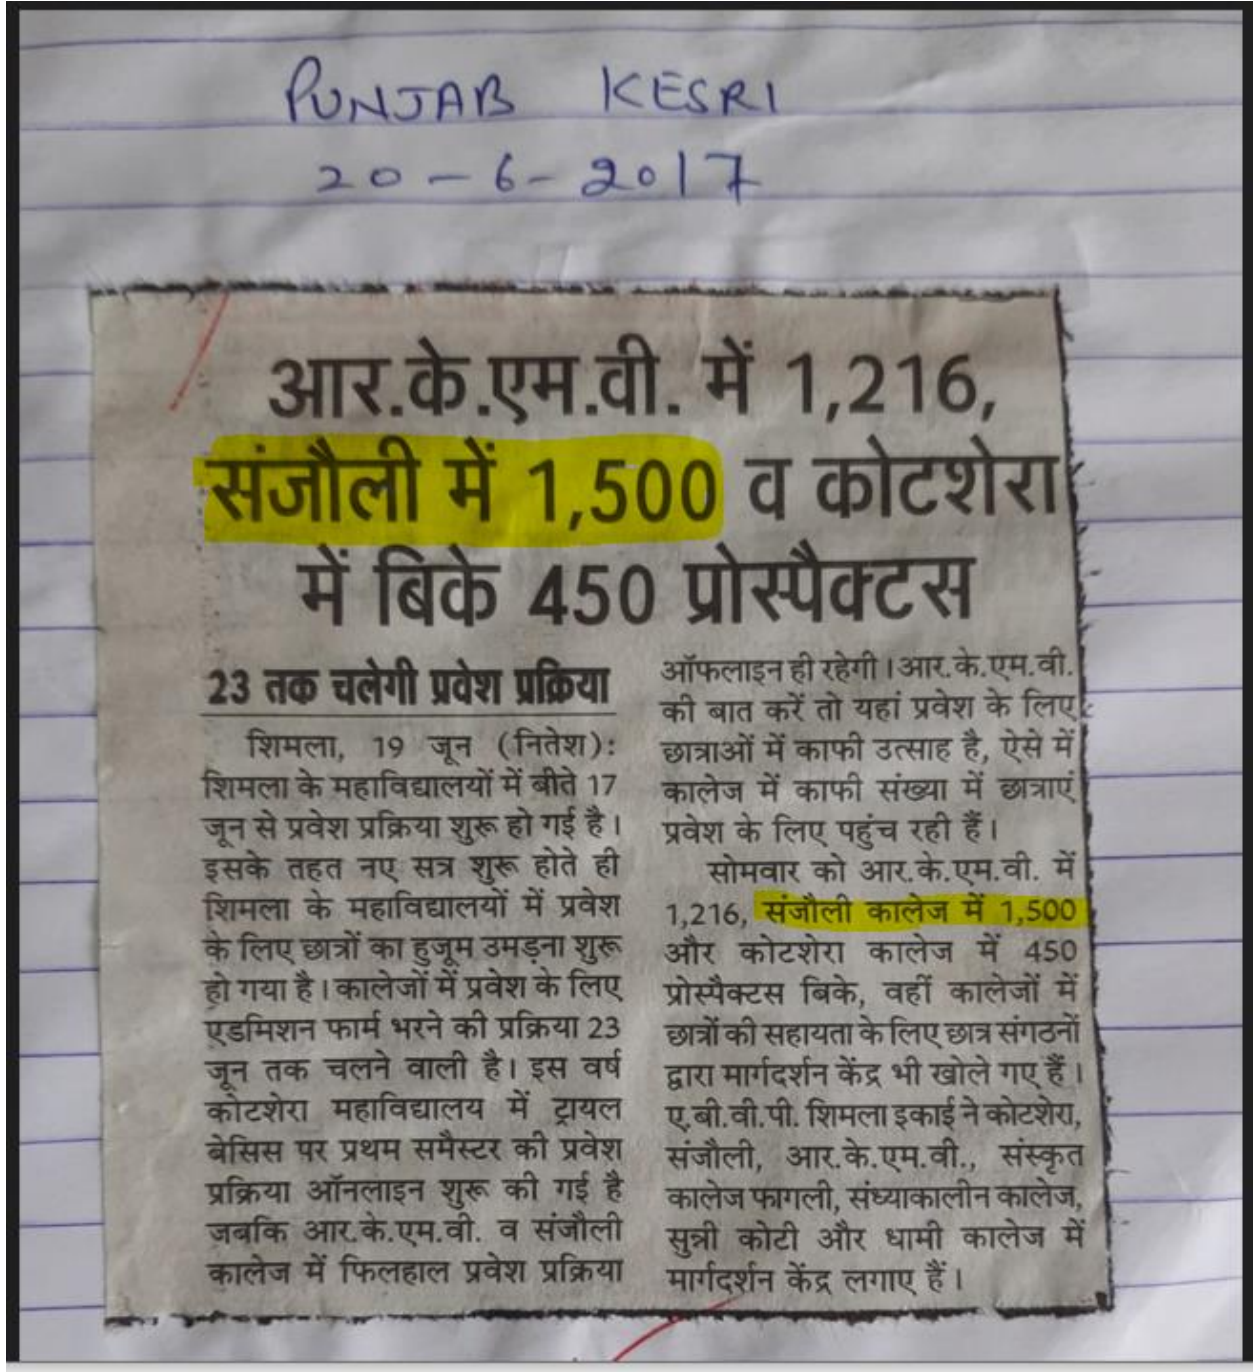 PUNJAB KESRI
20-6-2017
आर.के.एम.वी. में 1,216,
संजौली में 1,500 व कोटशेरा
में बिके 450 प्रोस्पैक्टस
23 तक चलेगी प्रवेश प्रक्रिया
शिमला, 19 जून (नितेश):
शिमला के महाविद्यालयों में बीते 17
जून से प्रवेश प्रक्रिया शुरू हो गई है।
इसके तहत नए सत्र शुरू होते ही
शिमला के महाविद्यालयों में प्रवेश
के लिए छात्रों का हुजूम उमड़ना शुरू
हो गया है। कालेजों में प्रवेश के लिए
एडमिशन फार्म भरने की प्रक्रिया 23
जून तक चलने वाली है। इस वर्ष
कोटशेरा महाविद्यालय में ट्रायल
बेसिस पर प्रथम समैस्टर की प्रवेश
प्रक्रिया ऑनलाइन शुरू की गई है
जबकि आर.के.एम.वी. व संजौली
कालेज में फिलहाल प्रवेश प्रक्रिया
ऑफलाइन ही रहेगी। आर.के.एम.वी.
की बात करें तो यहां प्रवेश के लिए
छात्राओं में काफी उत्साह है, ऐसे में
कालेज में काफी संख्या में छात्राएं
प्रवेश के लिए पहुंच रही हैं।
सोमवार को आर.के.एम.वी. में
1,216, संजौली कालेज में 1,500
और कोटशेरा कालेज में 450
प्रोस्पैक्टस बिके, वहीं कालेजों में
छात्रों की सहायता के लिए छात्र संगठनों
द्वारा मार्गदर्शन केंद्र भी खोले गए हैं।
ए.बी.वी.पी. शिमला इकाई ने कोटशेरा,
संजौली, आर.के.एम.वी., संस्कृत
कालेज फागली, संध्याकालीन कालेज,
सुन्नी कोटी और धामी कालेज में
मार्गदर्शन केंद्र लगाए हैं।